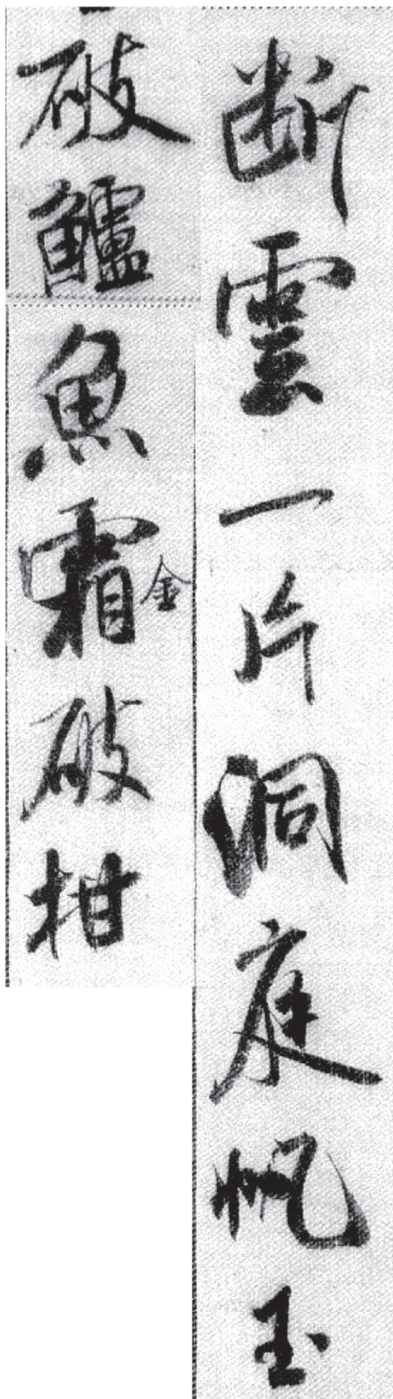 断雲一片洞庭帆玉
破鱸魚霜金破柑